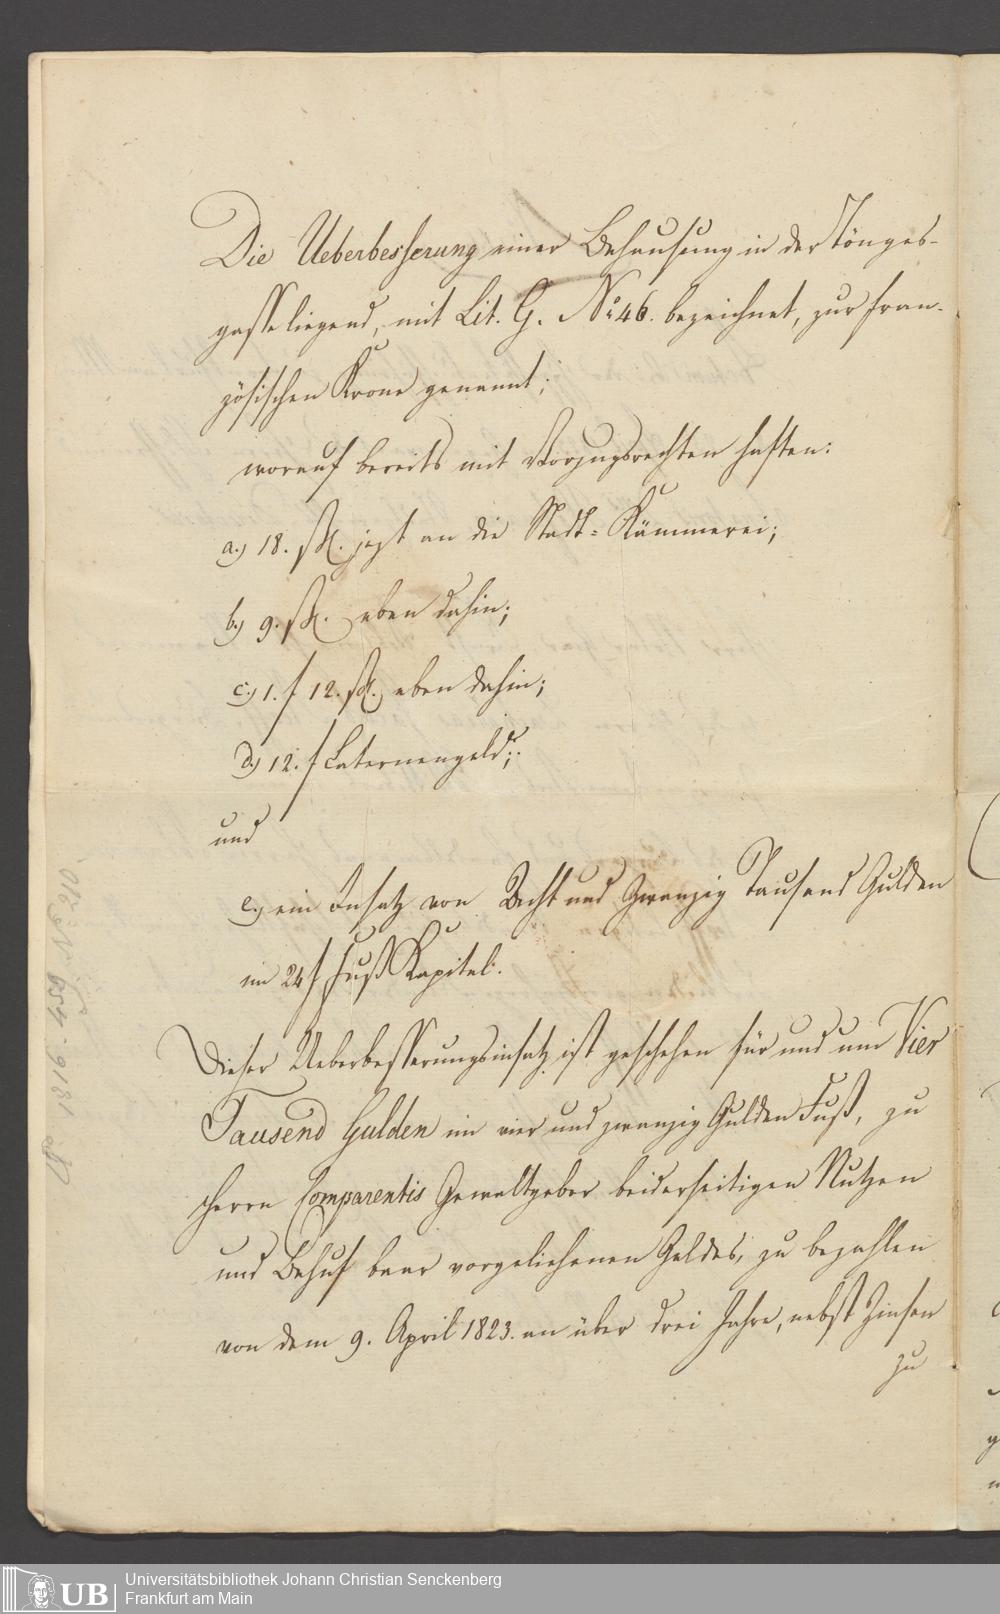 Die Ueberbesserung einer Behausung in der Tönges-
gasse liegend, mit Lit. G. No. 46. bezeichnet, zur fran-
zösischen Krone genannt;
worauf bereits mit Vorzugsrechten haften:
a.) 18. ßl. jezt an die Stadt-Kämmerei;
b.) 9. ßl. eben dahin;
c.) 1. f 12. ßl. eben dahin;
d.) 12. f Laternengeld;
und
e.) ein Insatz von Acht und Zwanzig Tausend Gulden
im 24 f Fuß Kapital.
Dieser Ueberbesserungsinsatz ist geschehen für und um Vier
Tausend Gulden im vier und zwanzig Gulden Fuß, zu
Herrn Comparentis Gewaltgeber beiderseitigen Nutzen
und Behuf baar vorgeliehenen Geldes, zu bezahlen
von dem 9. April 1823. an über drei Jahre, nebst Zinsen
zu
Universitätsbibliothek Johann Christian Senckenberg
UB Frankfurt am Main